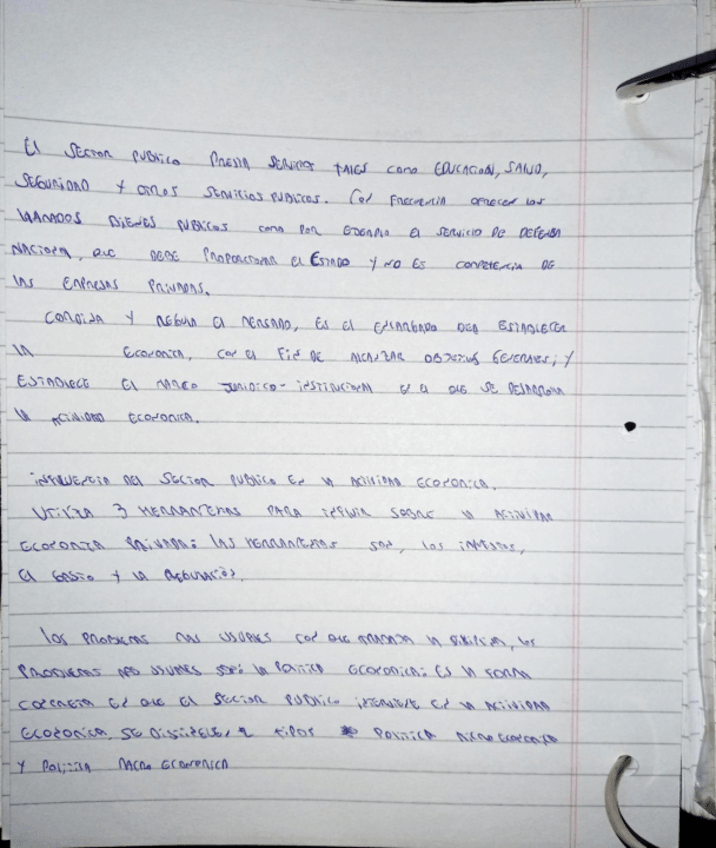 El SECTOR PUBLICO PRESTA SERVICIOS TALES como EDUCACION, SALUD,
SEGURIDAD Y OTROS SERVICIOS PUBLICOS. CON FRECUENCIA OFRECEN LOS
LLAMADOS BIENES PUBLICOS como POR EJEMPLO El SERVICIO DE DEFENSA
NACIONAL, QUE DEBE PROPORCIONAR El ESTADO Y NO ES COMPETENCIA DE
LAS EMPRESAS PRIVADAS.
Y REGULA El MERCADO, ES El ENCARGADO DEA ESTABLECER
LA ECONOMIA, CON El FIN DE ALCANZAR OBJETIVOS GENERALES; Y
ESTABLECE El MARCO JURIDICO-INSTITUCIONAL EN El QUE SE DESARROLLA
LA ACTIVIDAD ECONOMICA.
INFLUENCIA DEL SECTOR PUBLICO EN LA ACTIVIDAD ECONOMICA.
UTILIZA 3 HERRAMIENTAS PARA INFLUIR SOBRE LA ACTIVIDAD
ECONOMICA PRIVADA: LAS HERRAMIENTAS SON, LOS IMPUESTOS,
El GASTO Y LA REGULACIÓN.
LOS PROBLEMAS MAS USUALES CON QUE LA
PROBLEMAS MAS USUALES SON: LA POLITICA ECONOMICA: ES LA FORMA
CONCRETA EN QUE El SECTOR PUBLICO INTERVIENE EN LA ACTIVIDAD
ECONOMICA. SE DISTINGUEN 2 TIPOS POLITICA MICRO ECONOMICA
Y POLITICA MACRO ECONOMICA